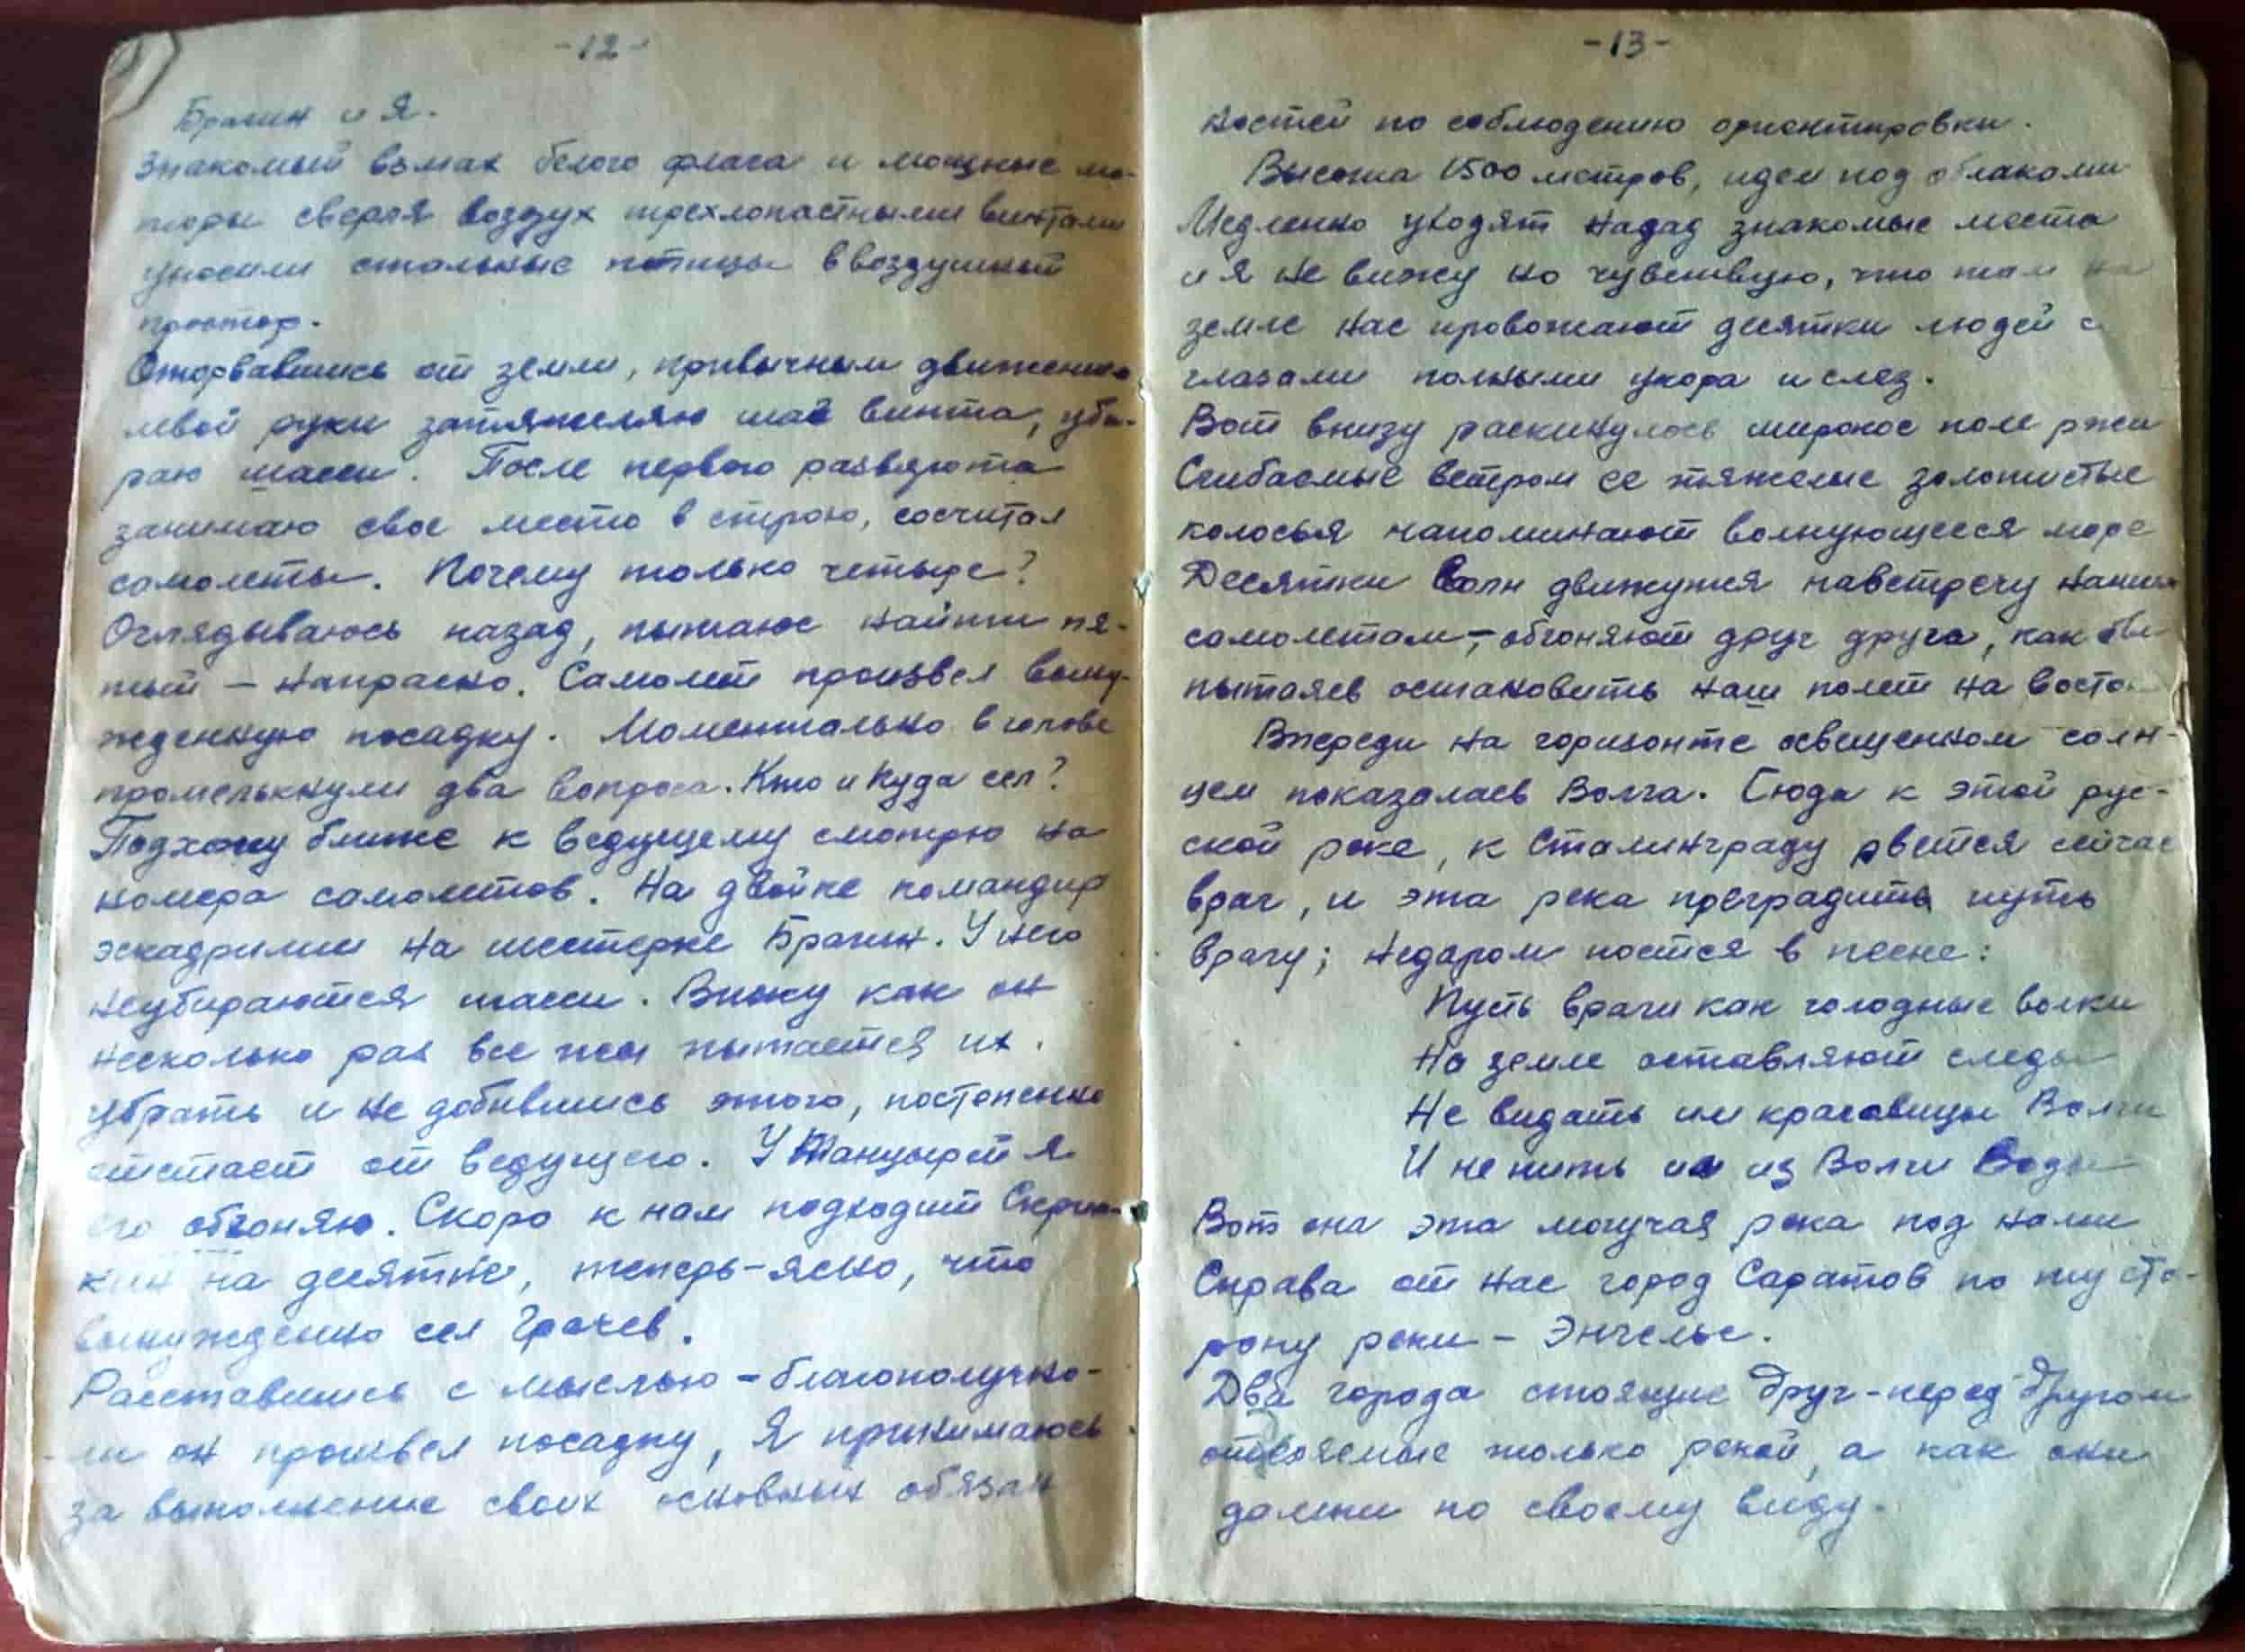 -12-
Брагин и Я.
Знакомый взмах белого флага и мощные мо-
торы сверля воздух трехлопастными винтами
уносили стальные птицы в воздушный
простор.
Оторвавшись от земли, привычным движением
левой руки затяжеляю шаг винта, уби-
раю шасси. После первого разворота
занимаю свое место в строю, сосчитал
самолеты. Почему только четыре?
Оглядываюсь назад, пытаюс найти пя-
тый – напрасно. Самолет произвел выну-
жденную посадку. Моментально в голове
промелькнули два вопроса. Кто и куда сел?
Подхожу ближе к ведущему смотрю на
номера самолетов. На двойке командир
эскадрилии на шестерке Брагин. У него
неубираются шасси. Вижу как он
несколько раз все пытается их
убрать и не добившись этого, постепенно
отстает от ведущего. У Танцырей я
его обгоняю. Скоро к нам подходит
на десятке, теперь-ясно, что
вынужденно сел Грачев.
Расставшись с мыслью – благополучно-
ли он произвел посадку, Я принимаюсь
за выполнение своих основных обязан
-13-
ностей по соблюдению ориентировки.
Высота 1500 метров, идем под облаками
Медленно уходят надад знакомые места
и я не вижу но чувствую, что там на
земле нас провожают десятки людей с
глазами полными укора и слез.
Вот внизу раскинулось широкое поле ржи
Сгибаемые ветром ее тяжелые золотистые
колосья напоминают волнующееся море
Десятки волн движутся навстречу нашим
самолетам, – обгоняют друг друга, как бы
пытаясь остановить наш полет на восто
Впереди на горизонте освещенном солн-
цем показалась Волга. Сюда к этой рус-
ской реке, к Сталинграду рвется сейчас
враг, и эта река преградить путь
врагу; недаром поется в песне:
Пусть враги как голодные волки
На земле оставляют следы
Не видать им красавицы Волги
И не пить им из Волги воды
Вот она эта могучая река под нами
Справа от нас город Саратов по ту сто-
рону реки – Энгельс.
Два города стоящие друг-перед другом
только рекой, а как они
далеки по своему виду.